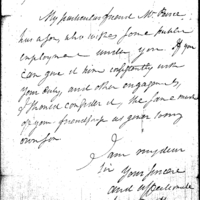 My particular friend Mr. Pierce
has a son, who wishes some public
employment under you. If you
can give it him consistently with
your duty, and other engagements,
I should consider it, the same mark
of your friendship as given to my
own son.
I am my dear
Sir your sincere
and affectionate